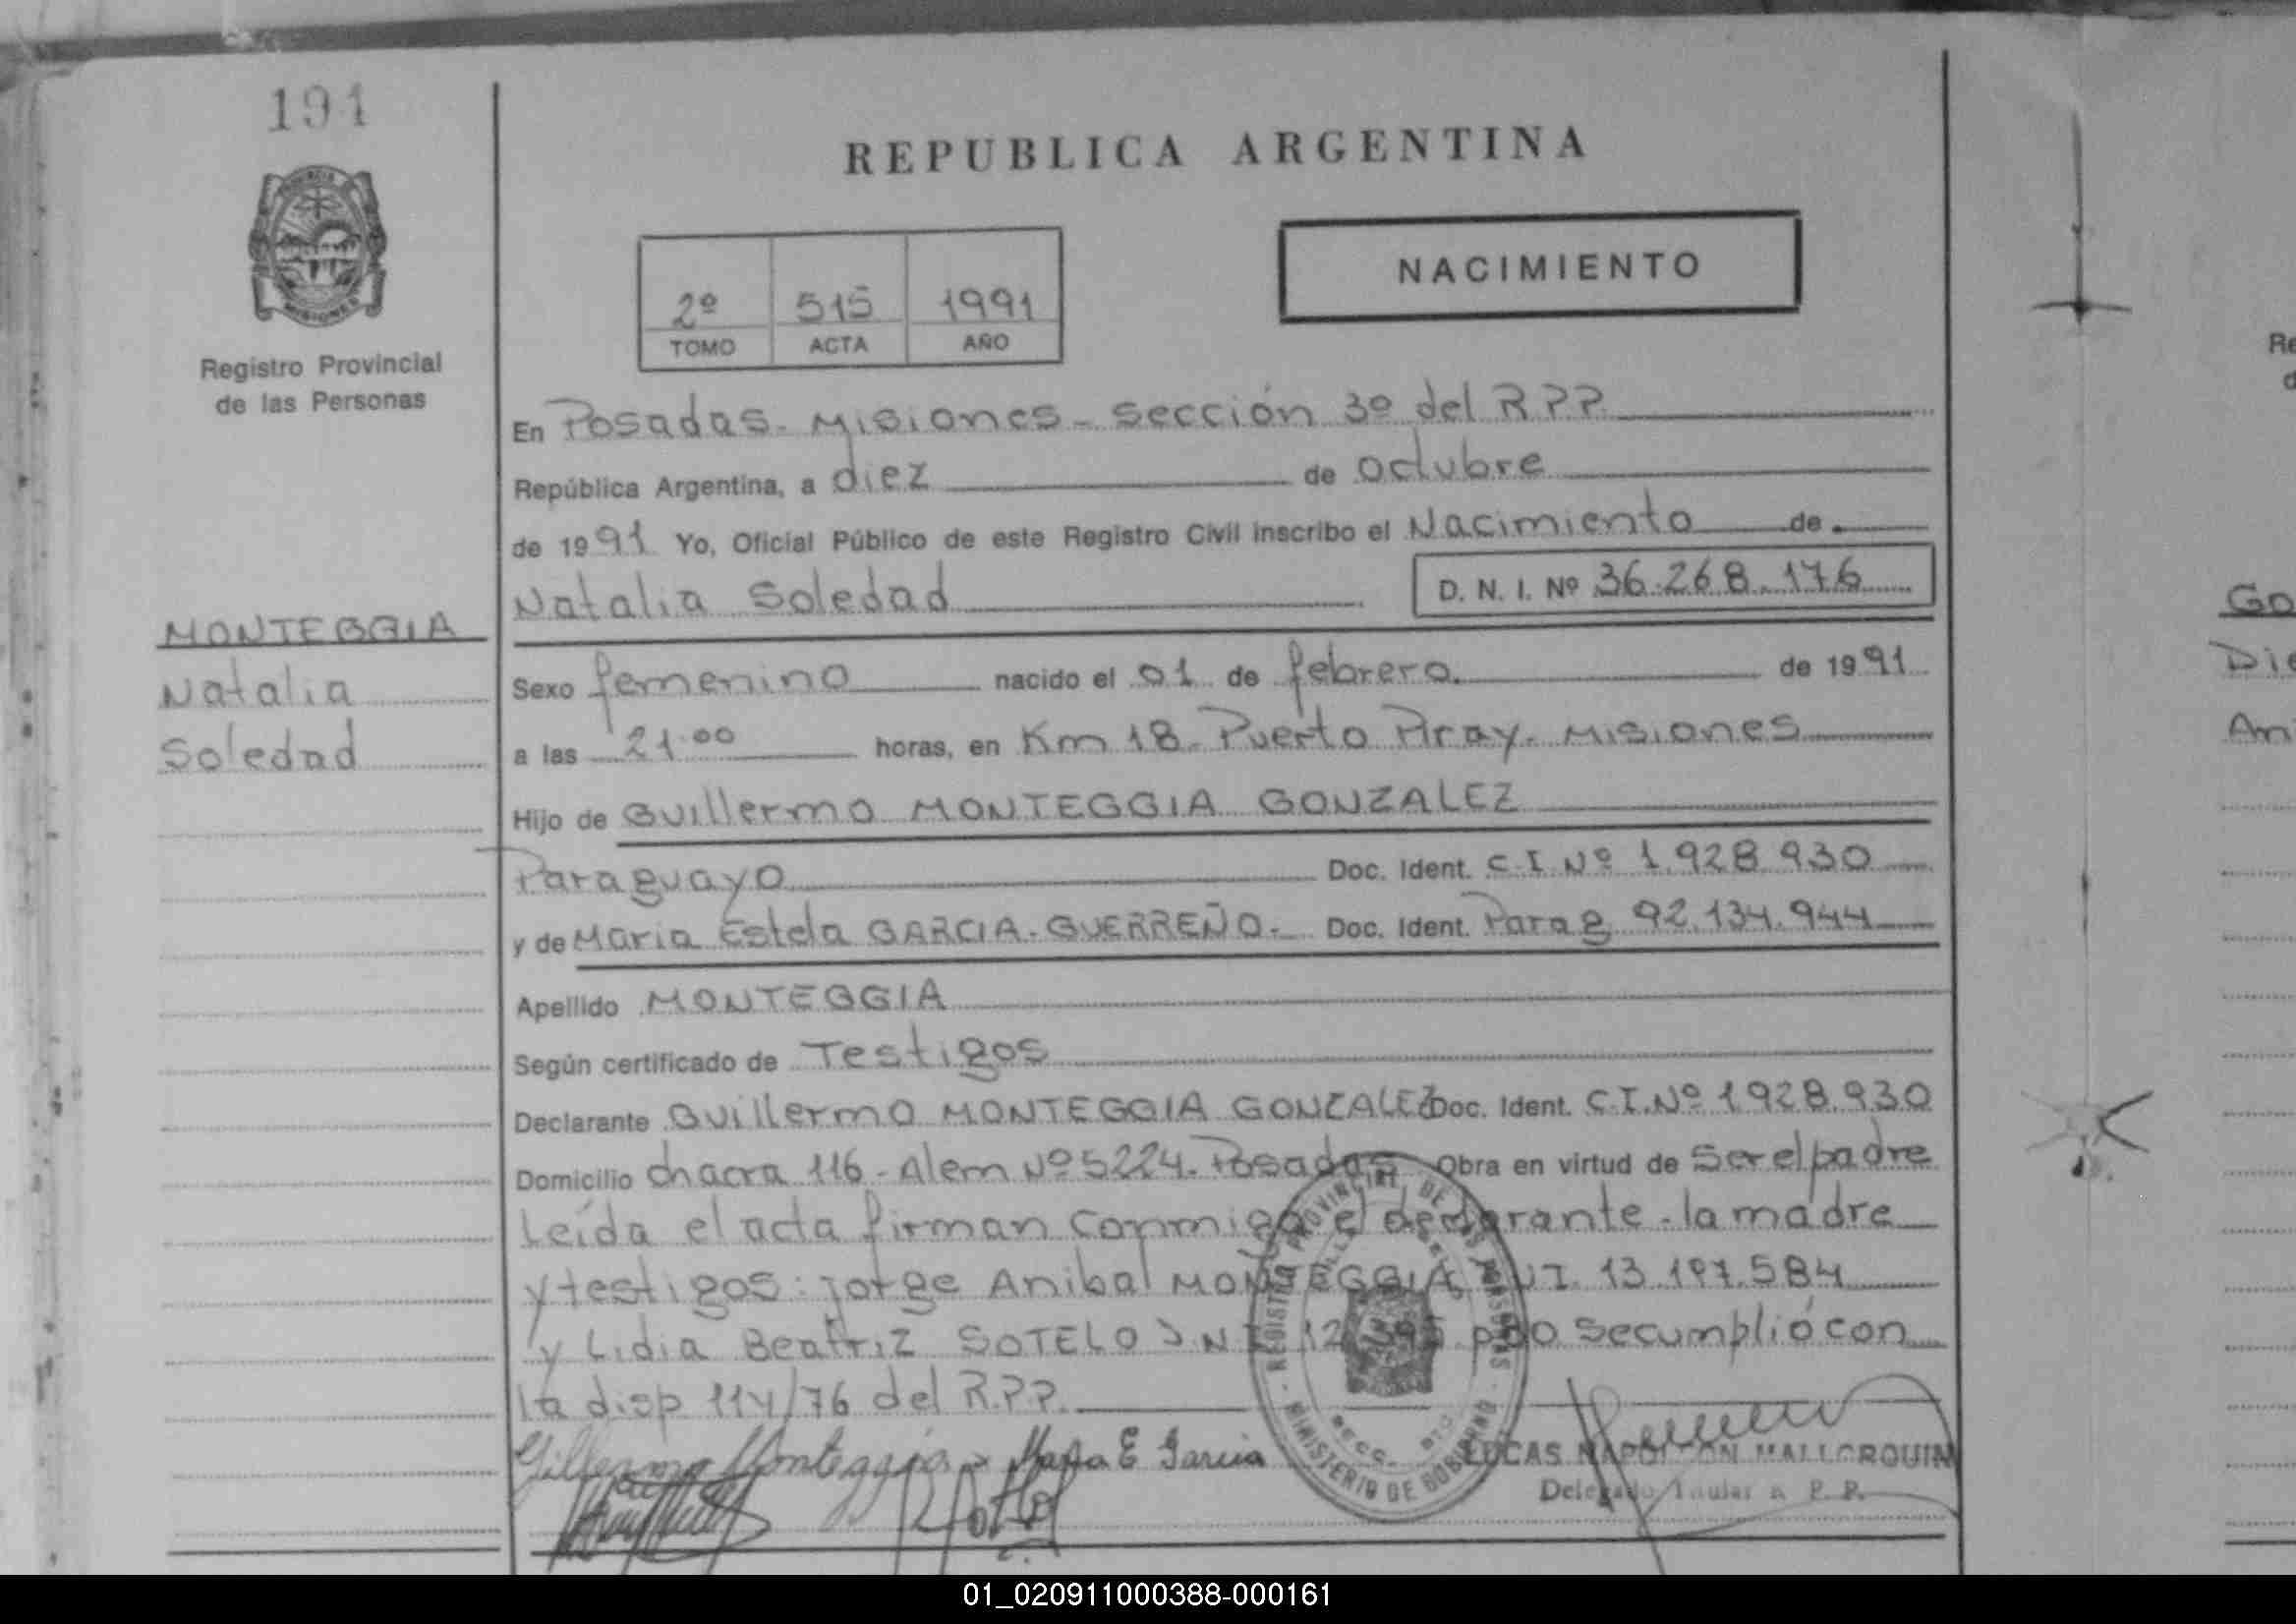 191
PROVINCIA
MISIONES
Registro Provincial
de las Personas
MONTEGGIA
Natalia
Soledad
REPUBLICA ARGENTINA
2º 515 1991
TOMO ACTA AÑO
NACIMIENTO
En Posadas - Misiones - sección 3º del R P P.
República Argentina, a diez de octubre
de 1991 Yo, Oficial Público de este Registro Civil inscribo el Nacimiento de
Natalia Soledad D. N. I. Nº 36.268.176
Sexo femenino nacido el 01 de febrero. de 1991
a las 21.00 horas, en Km 18 - Puerto Piray - Misiones
Hijo de Guillermo MONTEGGIA GONZALEZ
Paraguayo Doc. Ident. C.I. Nº 1.928.930
y de Maria Estela GARCIA - GUERREÑO - Doc. Ident. Parag 92.134.944
Apellido MONTEGGIA
Según certificado de Testigos
Declarante Guillermo MONTEGGIA GONZALEZ Doc. Ident. C.I. Nº 1928.930
Domicilio chacra 116 - Alem Nº 5224 - Posadas Obra en virtud de Ser el padre
Leída el acta firman conmigo el declarante - la madre
y testigos: jorge Anibal MONTEGGIA 13.197.584
y Lidia Beatriz SOTELO D.N.I. se cumplió con
la disp 114/76 del R.P.P.
Guillermo Monteggia Maria E Garcia
REGISTRO PROVINCIAL DE LAS PERSONAS
MINISTERIO DE GOBIERNO
LUCAS NAPOLEON MALLORQUIN
Delegado Titular R. P. P.
Go
Die
An
Re
d
01_020911000388-000161